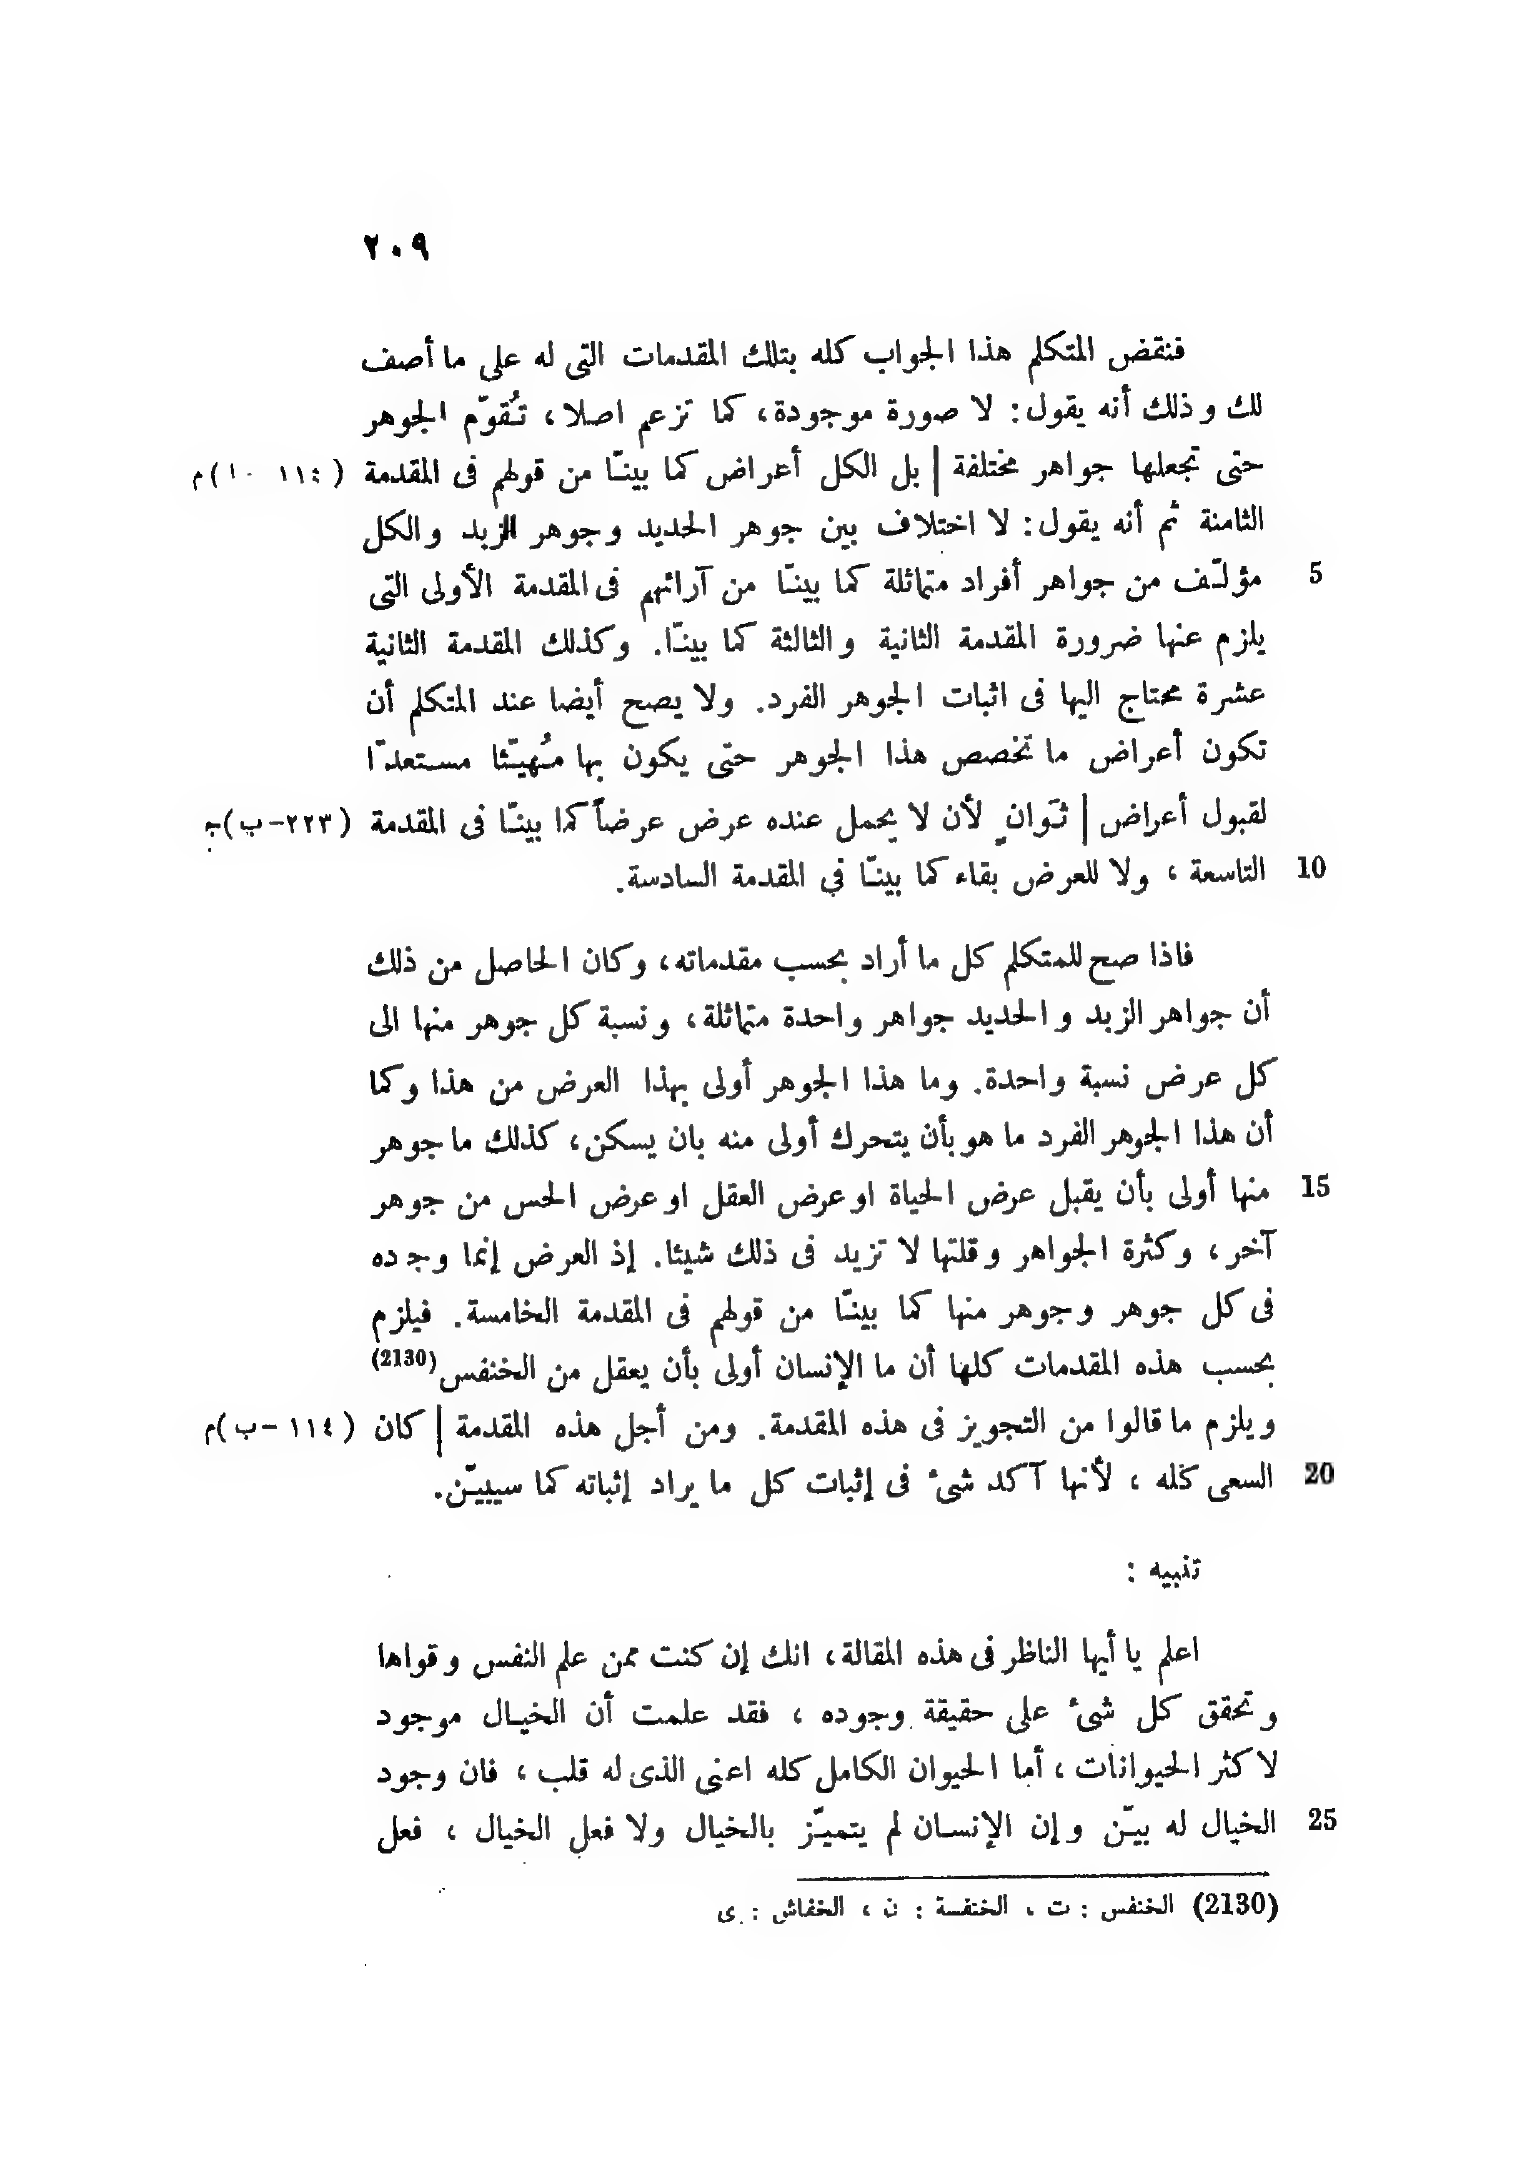 ٢٠٩
فنقض المتكلم هذا الجواب كله بتلك المقدمات التى له على ما أصف
لك وذلك أنه يقول: لا صورة موجودة، كما تزعم اصلا، تُقوّم الجوهر
حتى تجعلها جواهر مختلفة | بل الكل أعراض كما بينّا من قولهم فى المقدمة (١١٤ - ا)م
الثامنة ثم أنه يقول: لا اختلاف بين جوهر الحديد وجوهر الزبد والكل
مؤلّف من جواهر أفراد متماثلة كما بينّا من آرائهم فى المقدمة الأولى التى 5
يلزم عنها ضرورة المقدمة الثانية والثالثة كما بينّا. وكذلك المقدمة الثانية
عشرة محتاج اليها فى اثبات الجوهر الفرد. ولا يصح أيضا عند المتكلم أن
تكون أعراض ما تخصص هذا الجوهر حتى يكون بها مُهيّئا مستعدّا
لقبول أعراض | ثَوانٍ لأن لا يحمل عنده عرض عرضاً كما بينّا فى المقدمة (٢٢٣-ب)ج
التاسعة، ولا للعرض بقاء كما بينّا في المقدمة السادسة. 10
فاذا صح للمتكلم كل ما أراد بحسب مقدماته، وكان الحاصل من ذلك
أن جواهر الزبد والحديد جواهر واحدة متماثلة، ونسبة كل جوهر منها الى
كل عرض نسبة واحدة. وما هذا الجوهر أولى بهذا العرض من هذا وكما
أن هذا الجوهر الفرد ما هو بأن يتحرك أولى منه بان يسكن، كذلك ما جوهر
منها أولى بأن يقبل عرض الحياة او عرض العقل او عرض الحس من جوهر 15
آخر، وكثرة الجواهر وقلتها لا تزيد فى ذلك شيئا. إذ العرض إنما وجده
فى كل جوهر وجوهر منها كما بينّا من قولهم فى المقدمة الخامسة. فيلزم
بحسب هذه المقدمات كلها أن ما الإنسان أولى بأن يعقل من الخنفس (2130)
ويلزم ما قالوا من التجويز فى هذه المقدمة. ومن أجل هذه المقدمة | كان (١١٤ - ب)م
السعى كله، لأنها آكد شىء فى إثبات كل ما يراد إثباته كما سيبيّن. 20
تنبيه :
اعلم يا أيها الناظر فى هذه المقالة، انك إن كنت ممن علم النفس وقواها
وتحقق كل شىء على حقيقة وجوده، فقد علمت أن الخيال موجود
لاكثر الحيوانات، أما الحيوان الكامل كله اعنى الذى له قلب، فان وجود
الخيال له بيّن وإن الإنسان لم يتميّز بالخيال ولا فعل الخيال، فعل 25
(2130) الخنفس : ت ، الخنفسة : ن ، الخفاش : ى